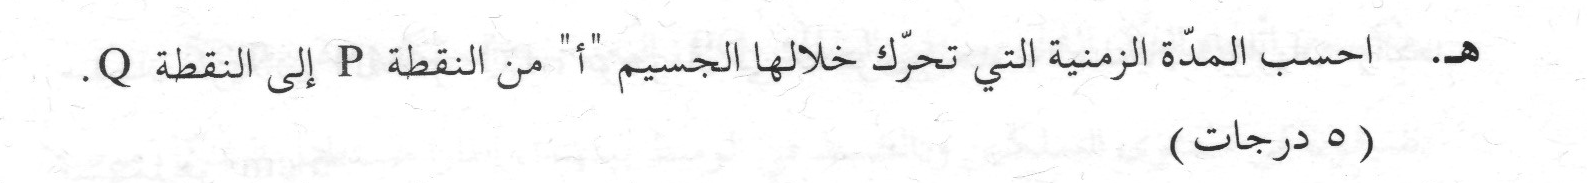 هـ. احسب المدّة الزمنية التي تحرّك خلالها الجسيم "أ" من النقطة P إلى النقطة Q.
( ٥ درجات )